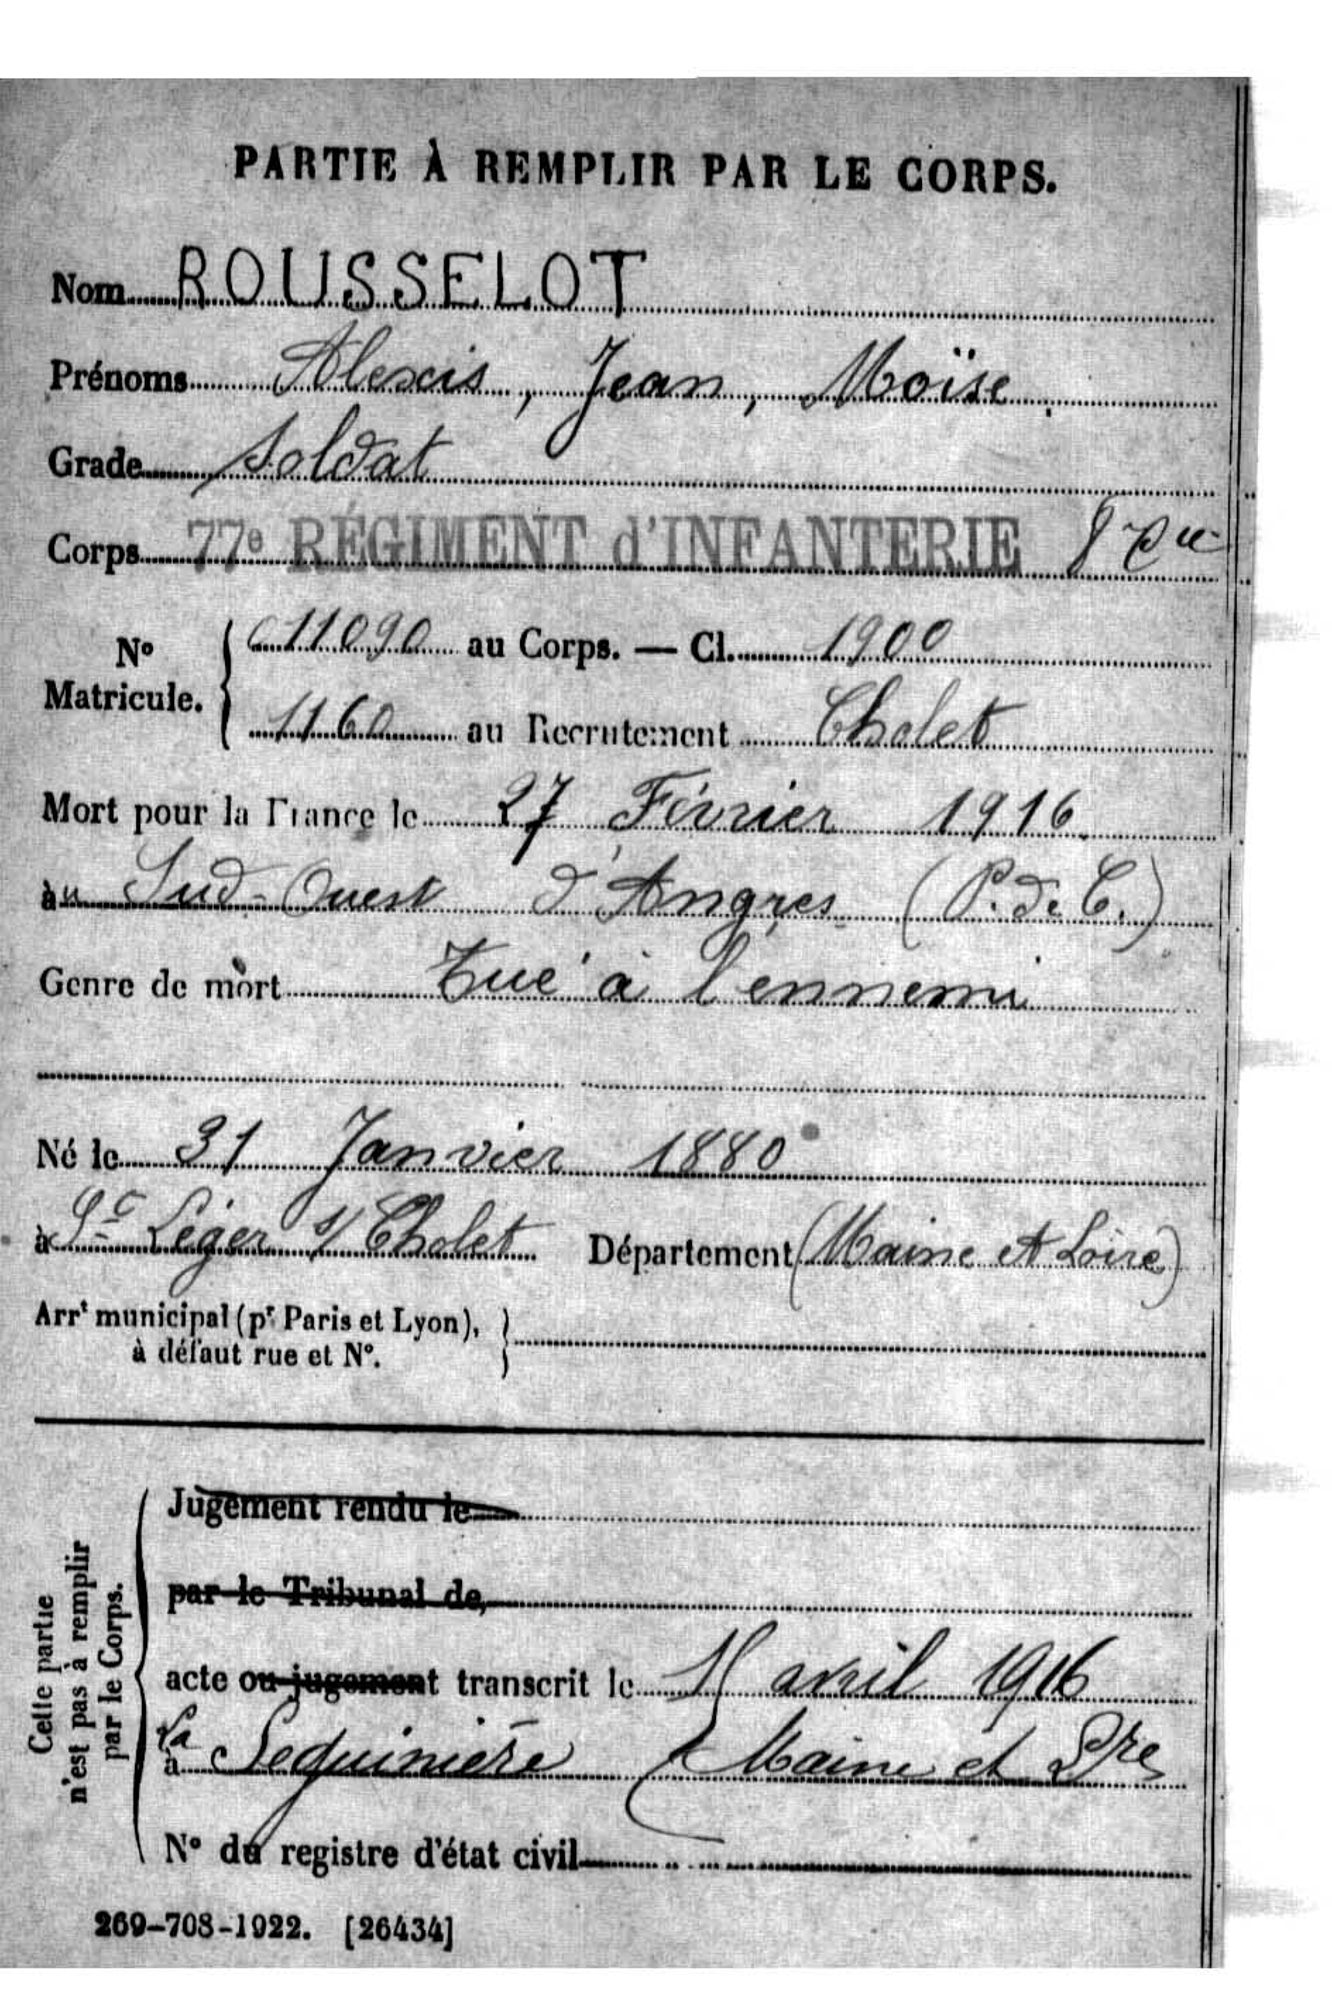 PARTIE À REMPLIR PAR LE CORPS.
Nom ROUSSELOT
Prénoms Alexis, Jean, Moïse.
Grade Soldat
Corps 77e RÉGIMENT d'INFANTERIE 8e Cie
No Matricule. { 11090 au Corps. — Cl. 1900
1160 au Recrutement Cholet
Mort pour la France le 27 Février 1916.
au Sud-Ouest d'Angres (P. de C.)
Genre de mort Tué à l'ennemi
Né le 31 Janvier 1880
à St Léger s/ Cholet Département (Maine et Loire)
Arrt municipal (pr Paris et Lyon), }
à défaut rue et No.
Cette partie
n'est pas à remplir
par le Corps.
Jugement rendu le
par le Tribunal de
acte ou jugement transcrit le avril 1916
à La Seguinière (Maine et Lre
No du registre d'état civil
269-708-1922. [26434]